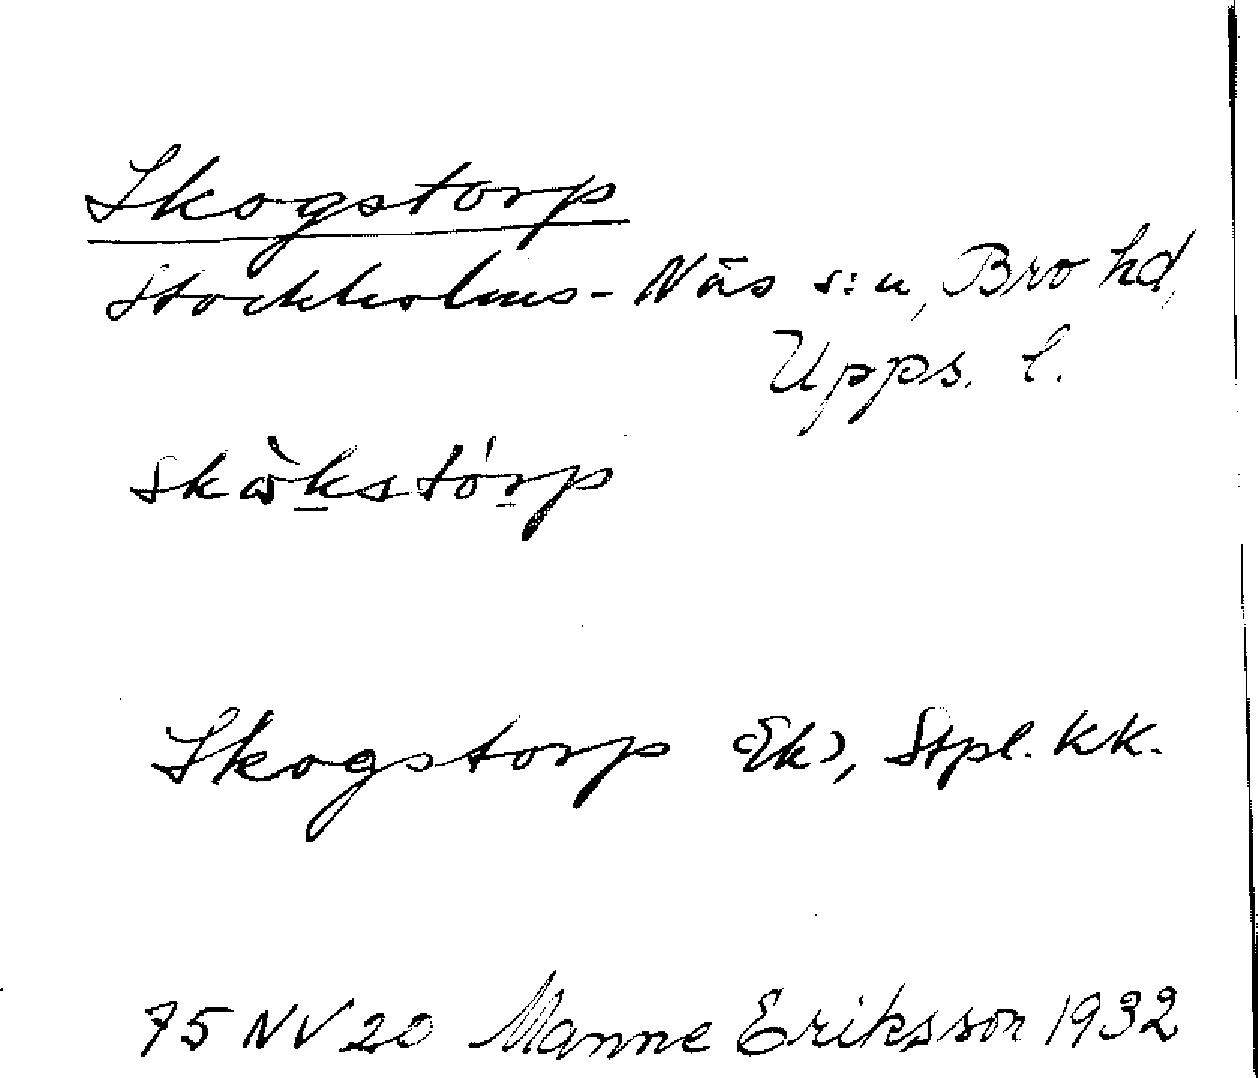 Skogstorp
Stockholms-Näs s:n, Bro hd,
Upps. l.
skὼkstórp
Skogstorp (Ek), Stpl. KK.
75 NV 20 Manne Eriksson 1932